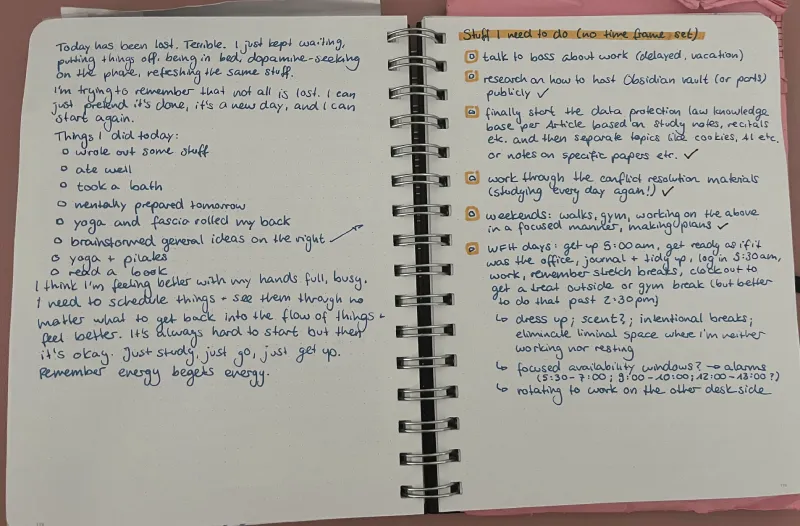 Today has been lost. Terrible. I just kept waiting,
putting things off, being in bed, dopamine-seeking
on the phone, refreshing the same stuff.
I'm trying to remember that not all is lost. I can
just pretend it's done, it's a new day, and I can
start again.
Things I did today:
o wrote out some stuff
o ate well
o took a bath
o mentally prepared tomorrow
o yoga and fascia rolled my back
o brainstormed general ideas on the right →
o yoga + pilates
o read a book
I think I'm feeling better with my hands full, busy.
I need to schedule things + see them through no
matter what to get back into the flow of things +
feel better. It's always hard to start but then
it's okay. Just study, just go, just get up.
Remember energy begets energy.
Stuff I need to do (no time frame set)
talk to boss about work (delayed, vacation)
research on how to host Obsidian vault (or parts)
publicly ✓
finally start the data protection law knowledge
base per Article based on study notes, recitals
etc. and then separate topics like cookies, AI etc.
or notes on specific papers etc. ✓
work through the conflict resolution materials
(studying every day again!) ✓
weekends: walks, gym, working on the above
in a focused manner, making plans ✓
WFH days: get up 5:00am, get ready as if it
was the office, journal + tidy up, log in 5:30am,
work, remember stretch breaks, clock out to
get a treat outside or gym break (but better
to do that past 2:30pm)
↳ dress up; scent?; intentional breaks;
eliminate liminal space where I'm neither
working nor resting
↳ focused availability windows? → alarms
(5:30-7:00; 9:00-10:00; 12:00-13:00?)
↳ rotating to work on the other desk side